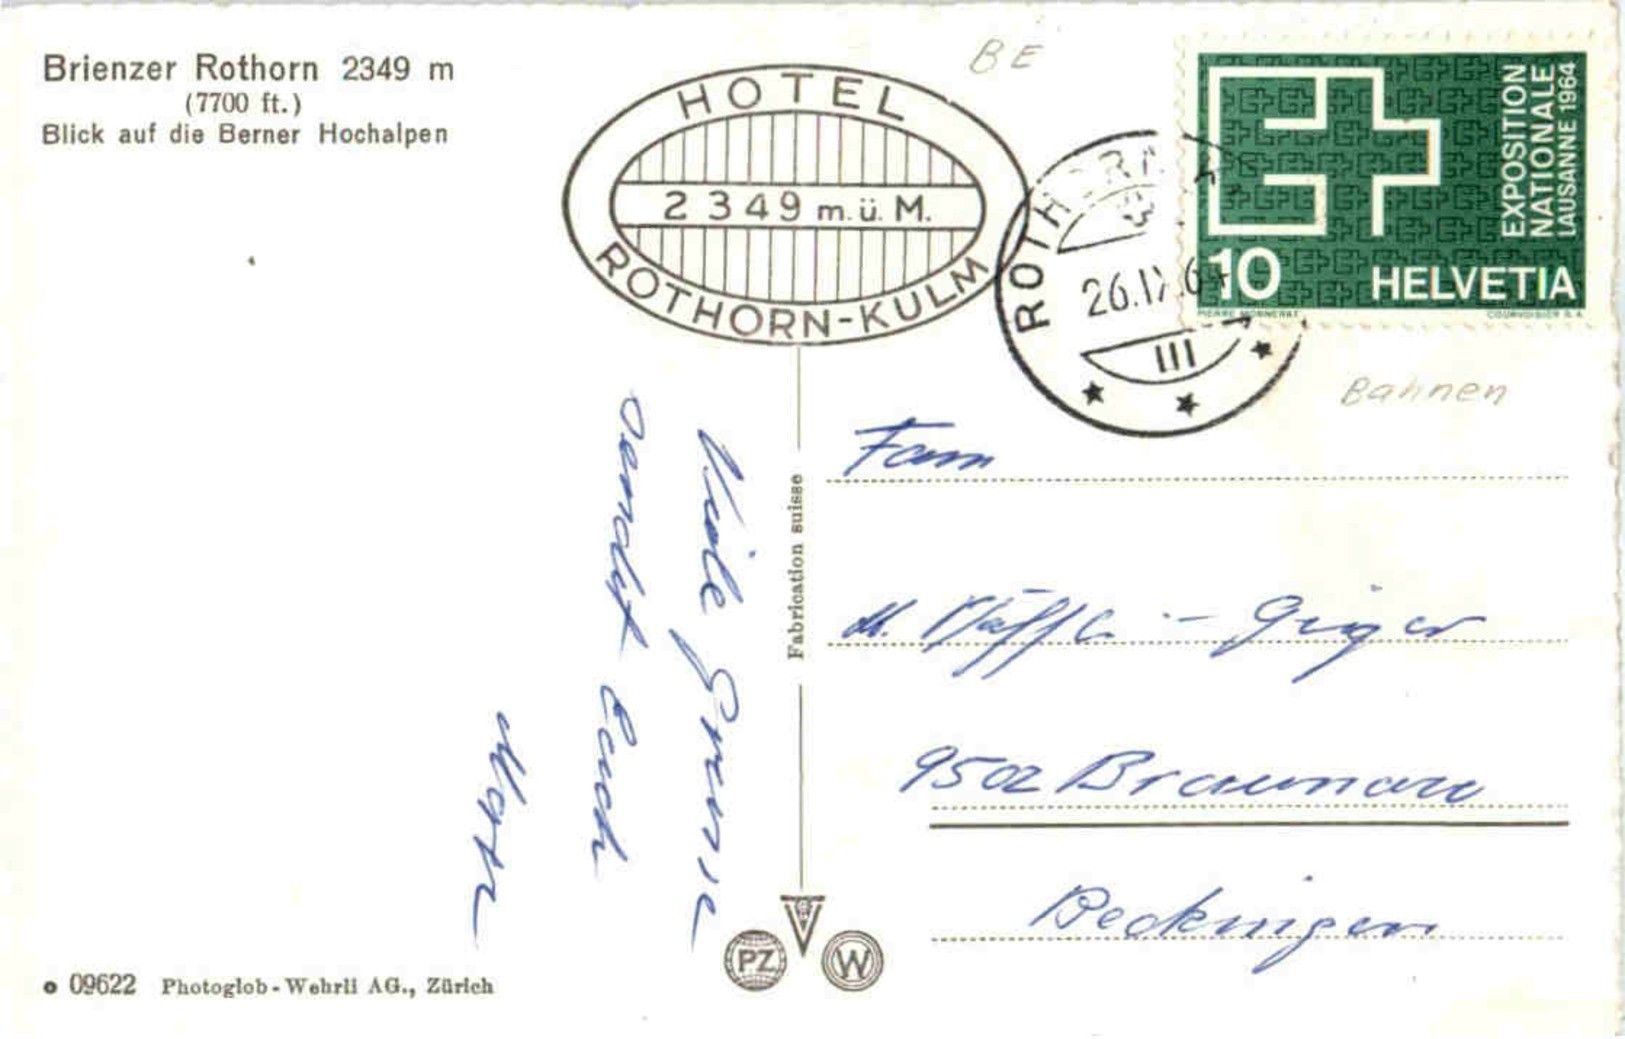 Brienzer Rothorn 2349 m
(7700 ft.)
Blick auf die Berner Hochalpen
HOTEL
2349 m.ü.M.
ROTHORN-KULM
BE
26.IX.64
III
EXPOSITION
NATIONALE
LAUSANNE 1964
10 HELVETIA
PIERRE MONNERAT COURVOISIER S.A.
Bahnen
Viele Grüsse
sendet Euch
Fabrication suisse
Fam
M. - Giger
9502 Braunau
Beckingen
PZ W
09622 Photoglob-Wehrli AG., Zürich